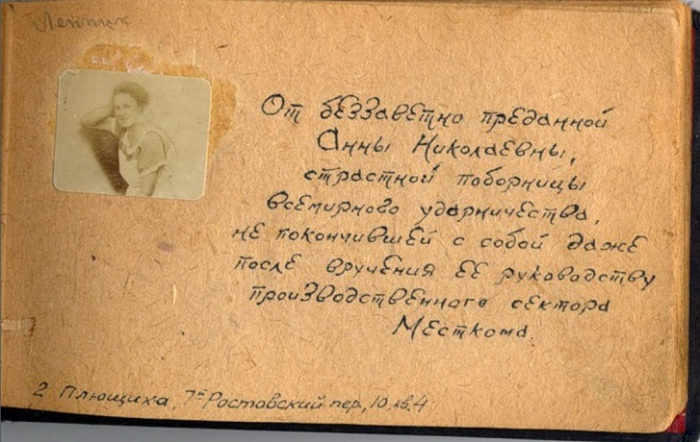 От беззаветно преданной
Анны Николаевны,
страстной поборницы
всемирного ударничества,
не покончившей с собой даже
после вручения ее руководству
производственного сектора
Месткома.
2 Плющиха, 7й Ростовский пер, 10, кв. 4